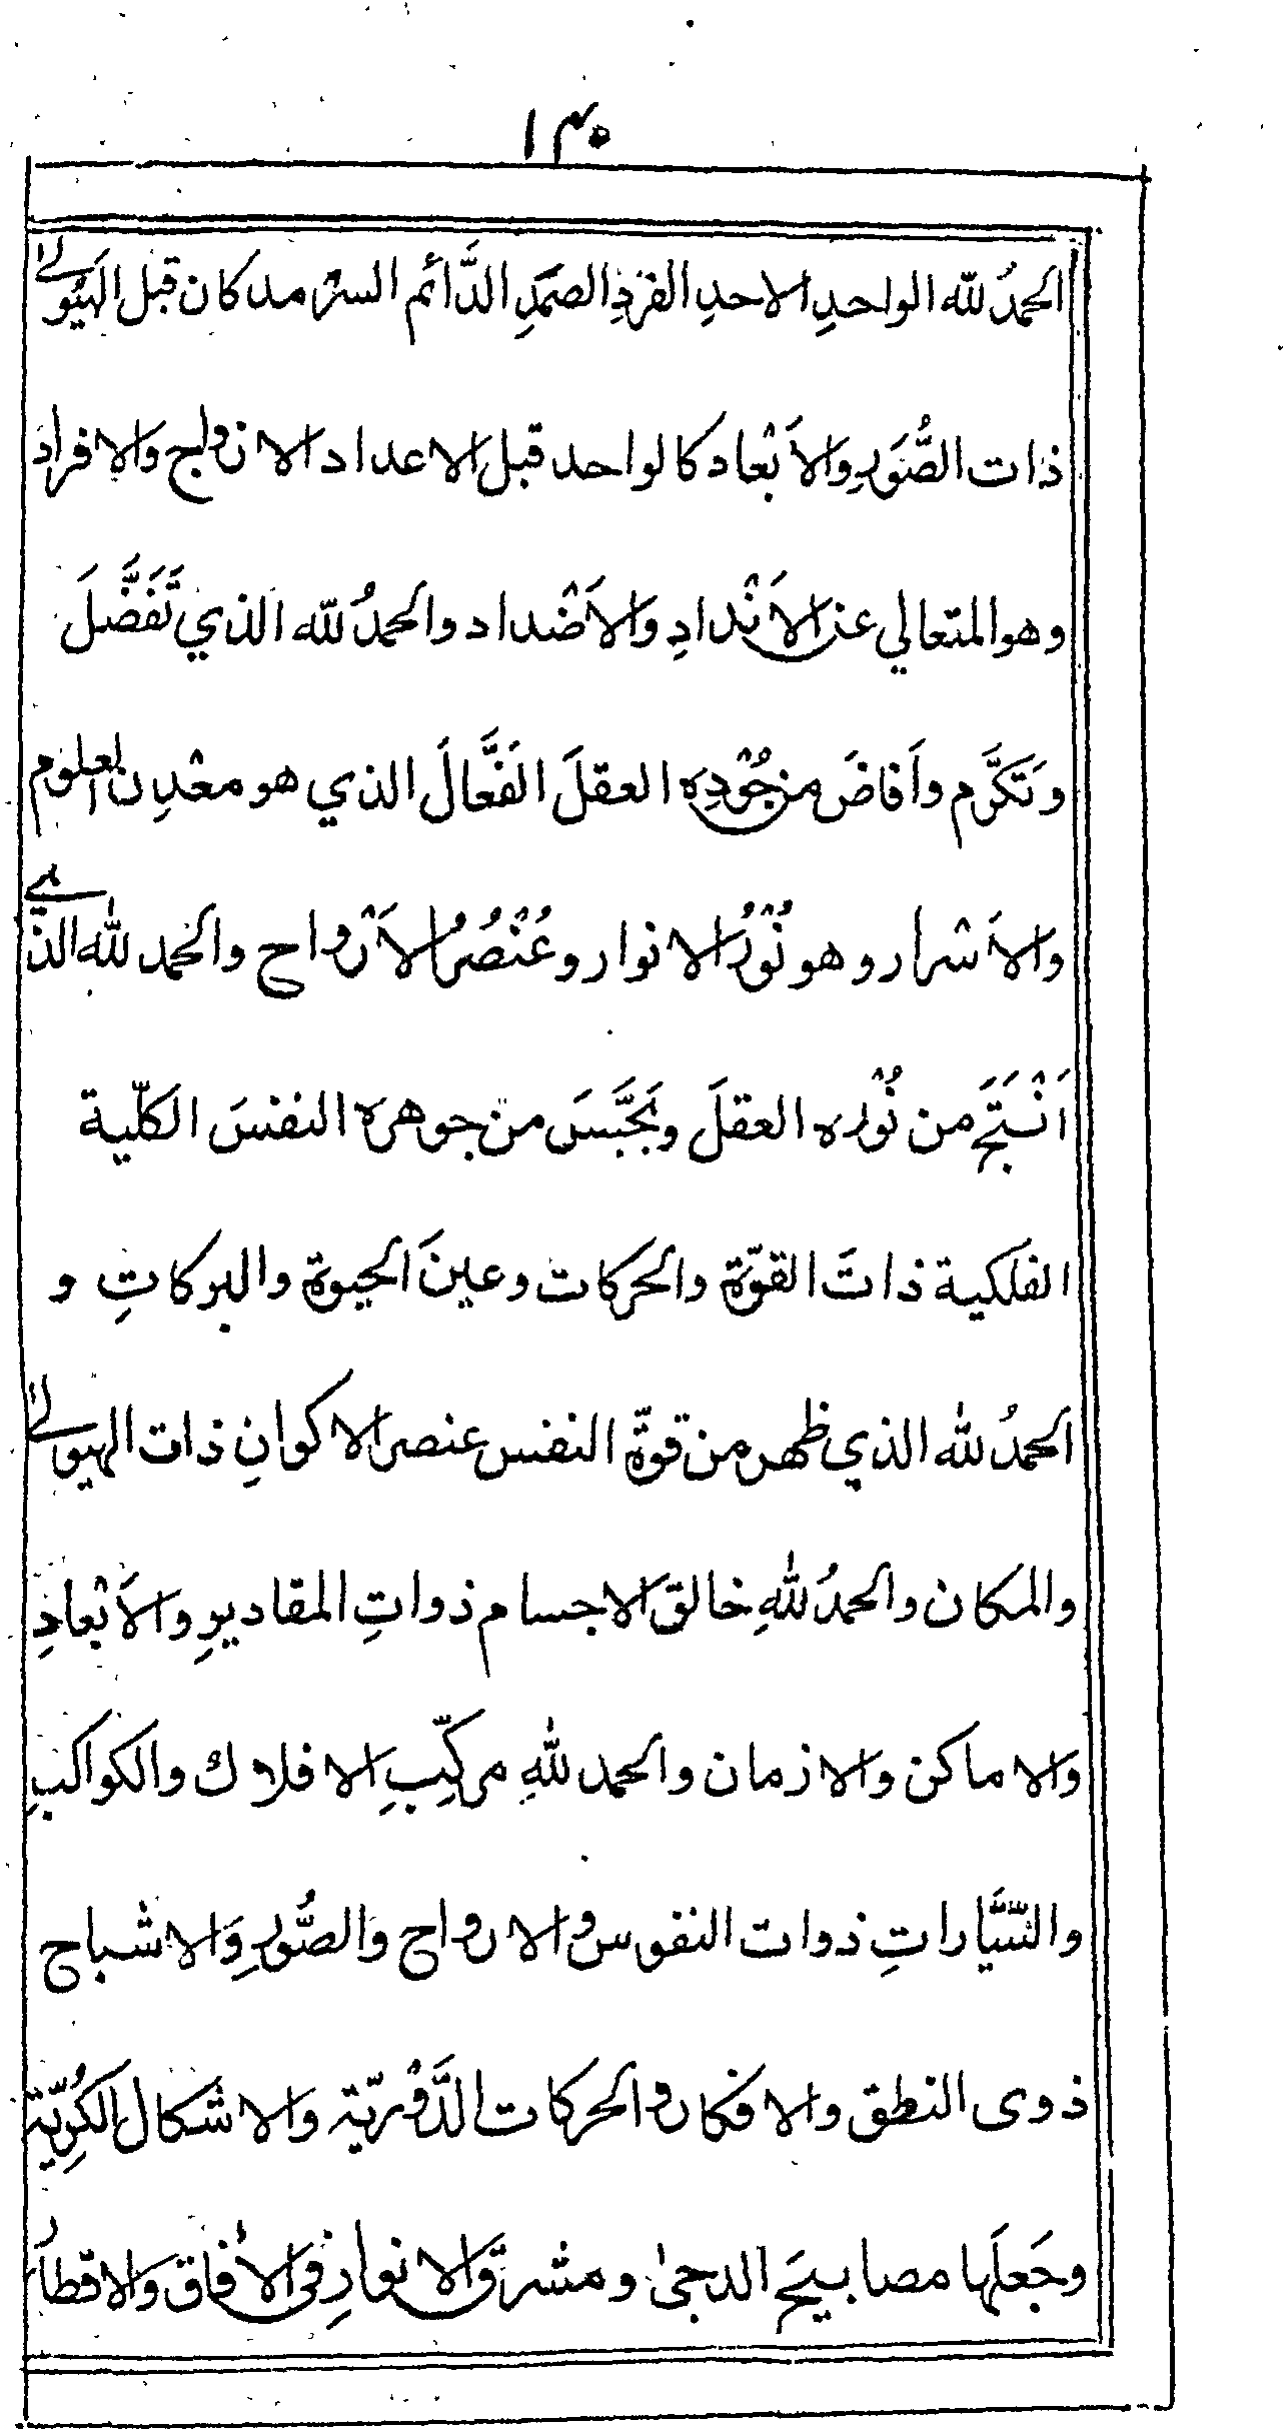 ١٣٥
الحمدُ لله الواحدِ الاحدِ الفردِ الصمَدِ الدَّائم السرْمد كان قبل الهَيُولى
ذات الصُّوَرِ والاَبْعاد كالواحد قبل الاعداد الازواج والافراد
وهو المتعالي عن الاَنْدادِ والاَضْداد والحمدُ لله الذي تَفَضَّلَ
وتَكَرَّم واَفاضَ من جُوْدِه العقلَ الفَعَّالَ الذي هو معْدِن العلوم
والاَسْرار وهو نُوْرُ الانوار وعُنْصُرُ الاَرْواح والحمد لله الذي
اَنْتَجَ من نُوْره العقلَ وبَجَّسَ من جوهره النفسَ الكلّية
الفلكية ذاتَ القوّة والحركات وعينَ الحيوة والبركاتِ و
الحمدُ لله الذي ظهر من قوّة النفس عنصر الاكوانِ ذات الهيولى
والمكان والحمدُ للهِ خالق الاجسام ذواتِ المقاديرِ والاَبْعادِ
والاماكن والازمان والحمد للهِ مركِّبِ الافلاك والكواكبِ
والسَّيَّاراتِ ذوات النفوس والارواح والصُّورِ والاشباح
ذوى النطق والافكار والحركات الدَّوْريّة والاشكال الكُرِيّة
وجَعلَها مصابيحَ الدجىٰ ومشرق الانوارِ فى الاٰفاق والاقطار